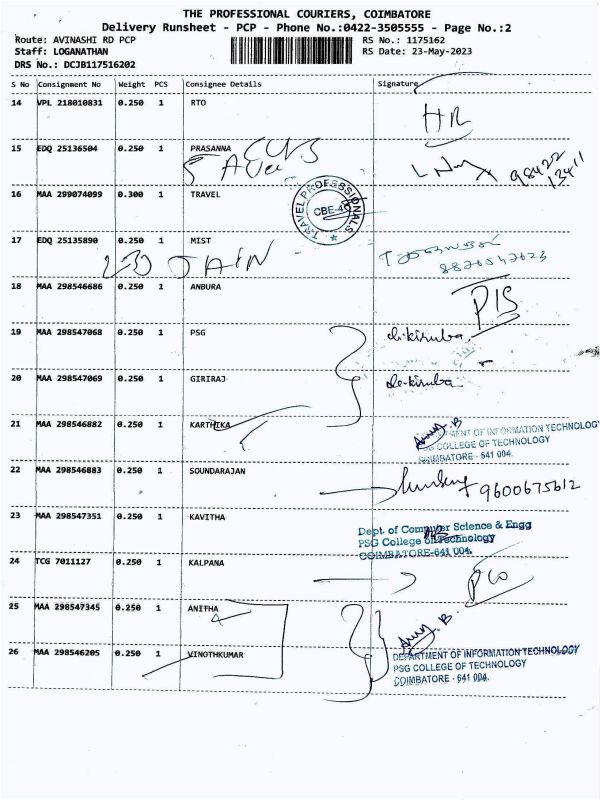 THE PROFESSIONAL COURIERS, COIMBATORE
Delivery Runsheet - PCP - Phone No.:0422-3505555 - Page No.:2
Route: AVINASHI RD PCP RS No.: 1175162
Staff: LOGANATHAN RS Date: 23-May-2023
DRS No.: DCJB117516202
S No Consignment No Weight PCS Consignee Details Signature
14 VPL 218010831 0.250 1 RTO
HR
15 EDQ 25136504 0.250 1 PRASANNA
98422
16 MAA 299074099 0.300 1 TRAVEL
TRAVEL PROFESSIONALS
CBE-4
17 EDQ 25135890 0.250 1 MIST
18 MAA 298546686 0.250 1 ANBURA
19 MAA 298547068 0.250 1 PSG
20 MAA 298547069 0.250 1 GIRIRAJ
21 MAA 298546882 0.250 1 KARTHIKA
OF INFORMATION TECHNOLOGY
PSG COLLEGE OF TECHNOLOGY
COIMBATORE - 641 004.
22 MAA 298546883 0.250 1 SOUNDARAJAN
9600675612
23 MAA 298547351 0.250 1 KAVITHA
Dept. of Computer Science & Engg
PSG College of Technology
COIMBATORE-641 004.
24 TCG 7011127 0.250 1 KALPANA
25 MAA 298547345 0.250 1 ANITHA
26 MAA 298546205 0.250 1 VINOTHKUMAR
DEPARTMENT OF INFORMATION TECHNOLOGY
PSG COLLEGE OF TECHNOLOGY
COIMBATORE - 641 004.